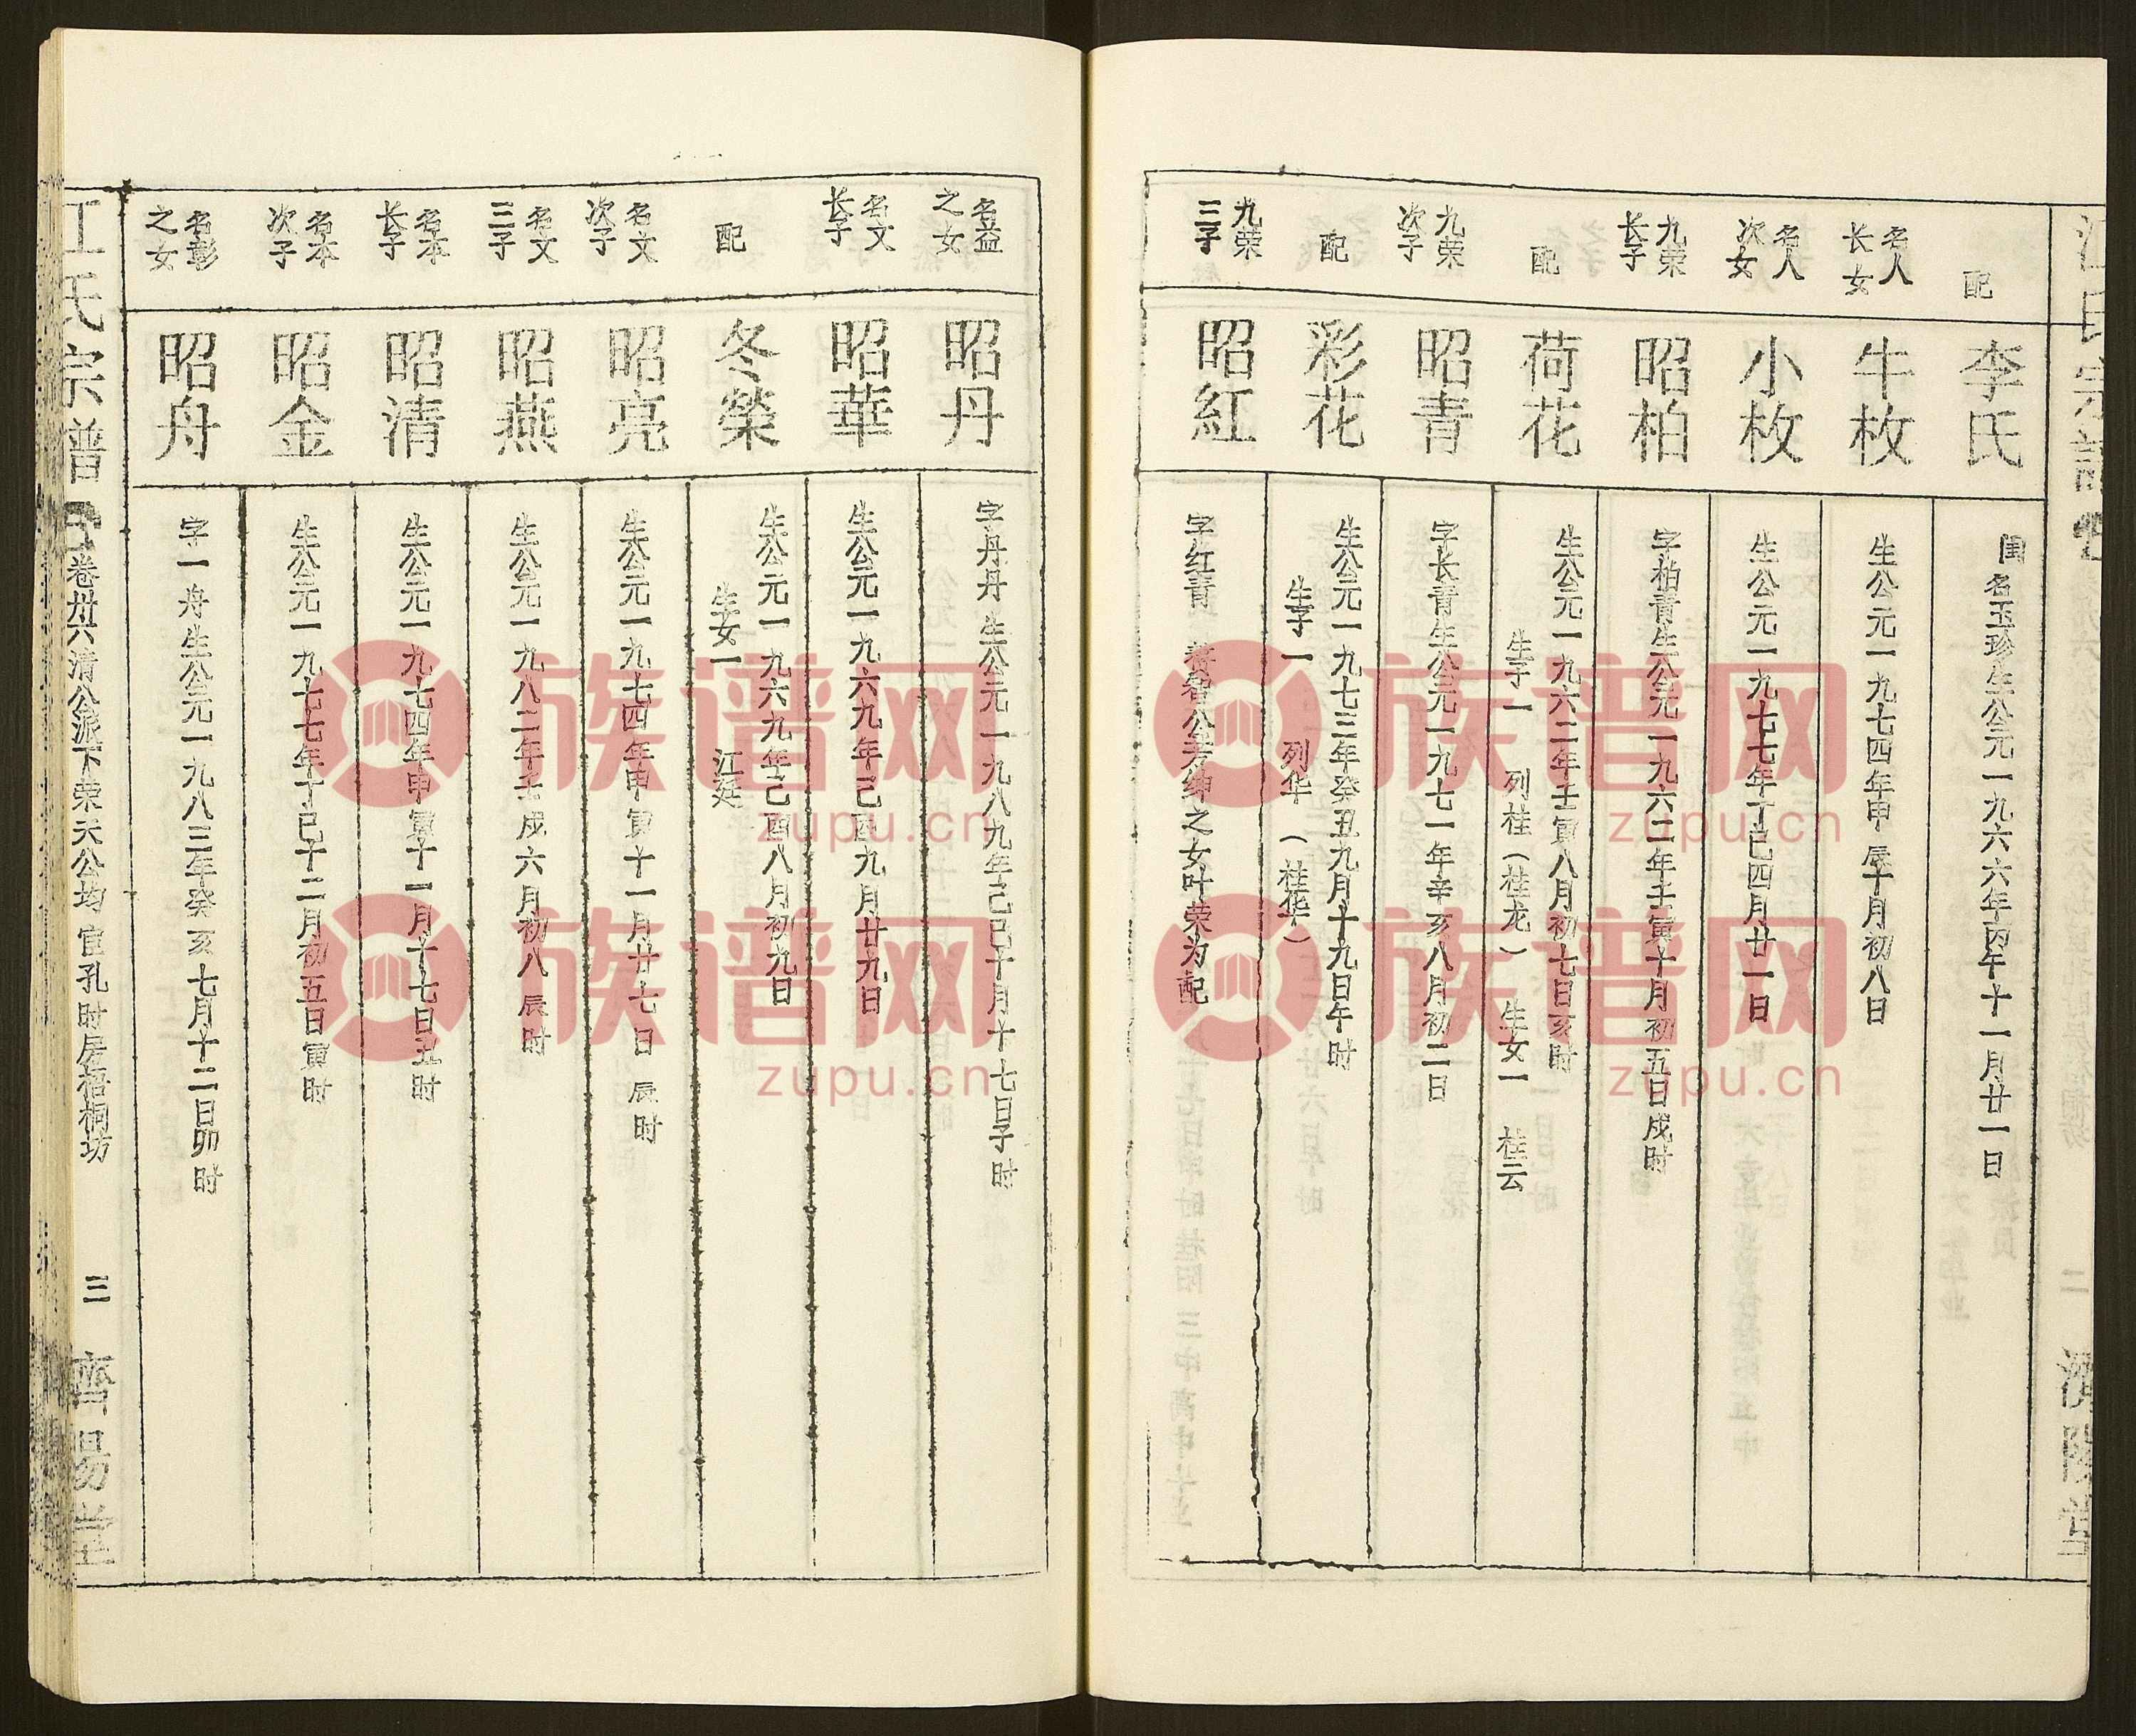 配
李氏
闺名玉珍生公元一九六六年丙午十一月廿一日
名人
长女
牛枚
生公元一九七四年申辰十月初八日
名人
次女
小枚
生公元一九七七年丁巳四月廿一日
九荣
长子
昭柏
字柏青生公元一九六二年壬寅十月初五日戍时
配
荷花
生公元一九六二年壬寅八月初七日亥时
生子一 列桂（桂龙） 生女一 桂云
九荣
次子
昭青
字长青生公元一九七一年辛亥八月初二日
配
彩花
生公元一九七三年癸丑九月十九日午时
生子一 列华（桂华）
九荣
三子
昭紅
字红青
公芳绅之女叶荣为配
名益
之女
昭丹
字丹丹 生公元一九八九年己巳十月十七日子时
名文
长子
昭華
生公元一九六九年己酉九月廿九日
配
冬榮
生公元一九六九年己酉八月初九日
生女一 江延
名文
次子
昭亮
生公元一九七四年申寅十一月廿七日辰时
名文
三子
昭燕
生公元一九八二年壬戍六月初八辰时
名本
长子
昭清
生公元一九七四年申寅十一月十七日丑时
名本
次子
昭金
生公元一九七七年丁巳十二月初五日寅时
名彰
之女
昭舟
字一舟生公元一九八三年癸亥七月十二日卯时
江氏宗譜
卷卅六清公派下荣天公均宦孔时居梧桐坊
三
濟陽堂
族谱网
zupu.cn
族谱网
zupu.cn
族谱网
zupu.cn
族谱网
zupu.cn